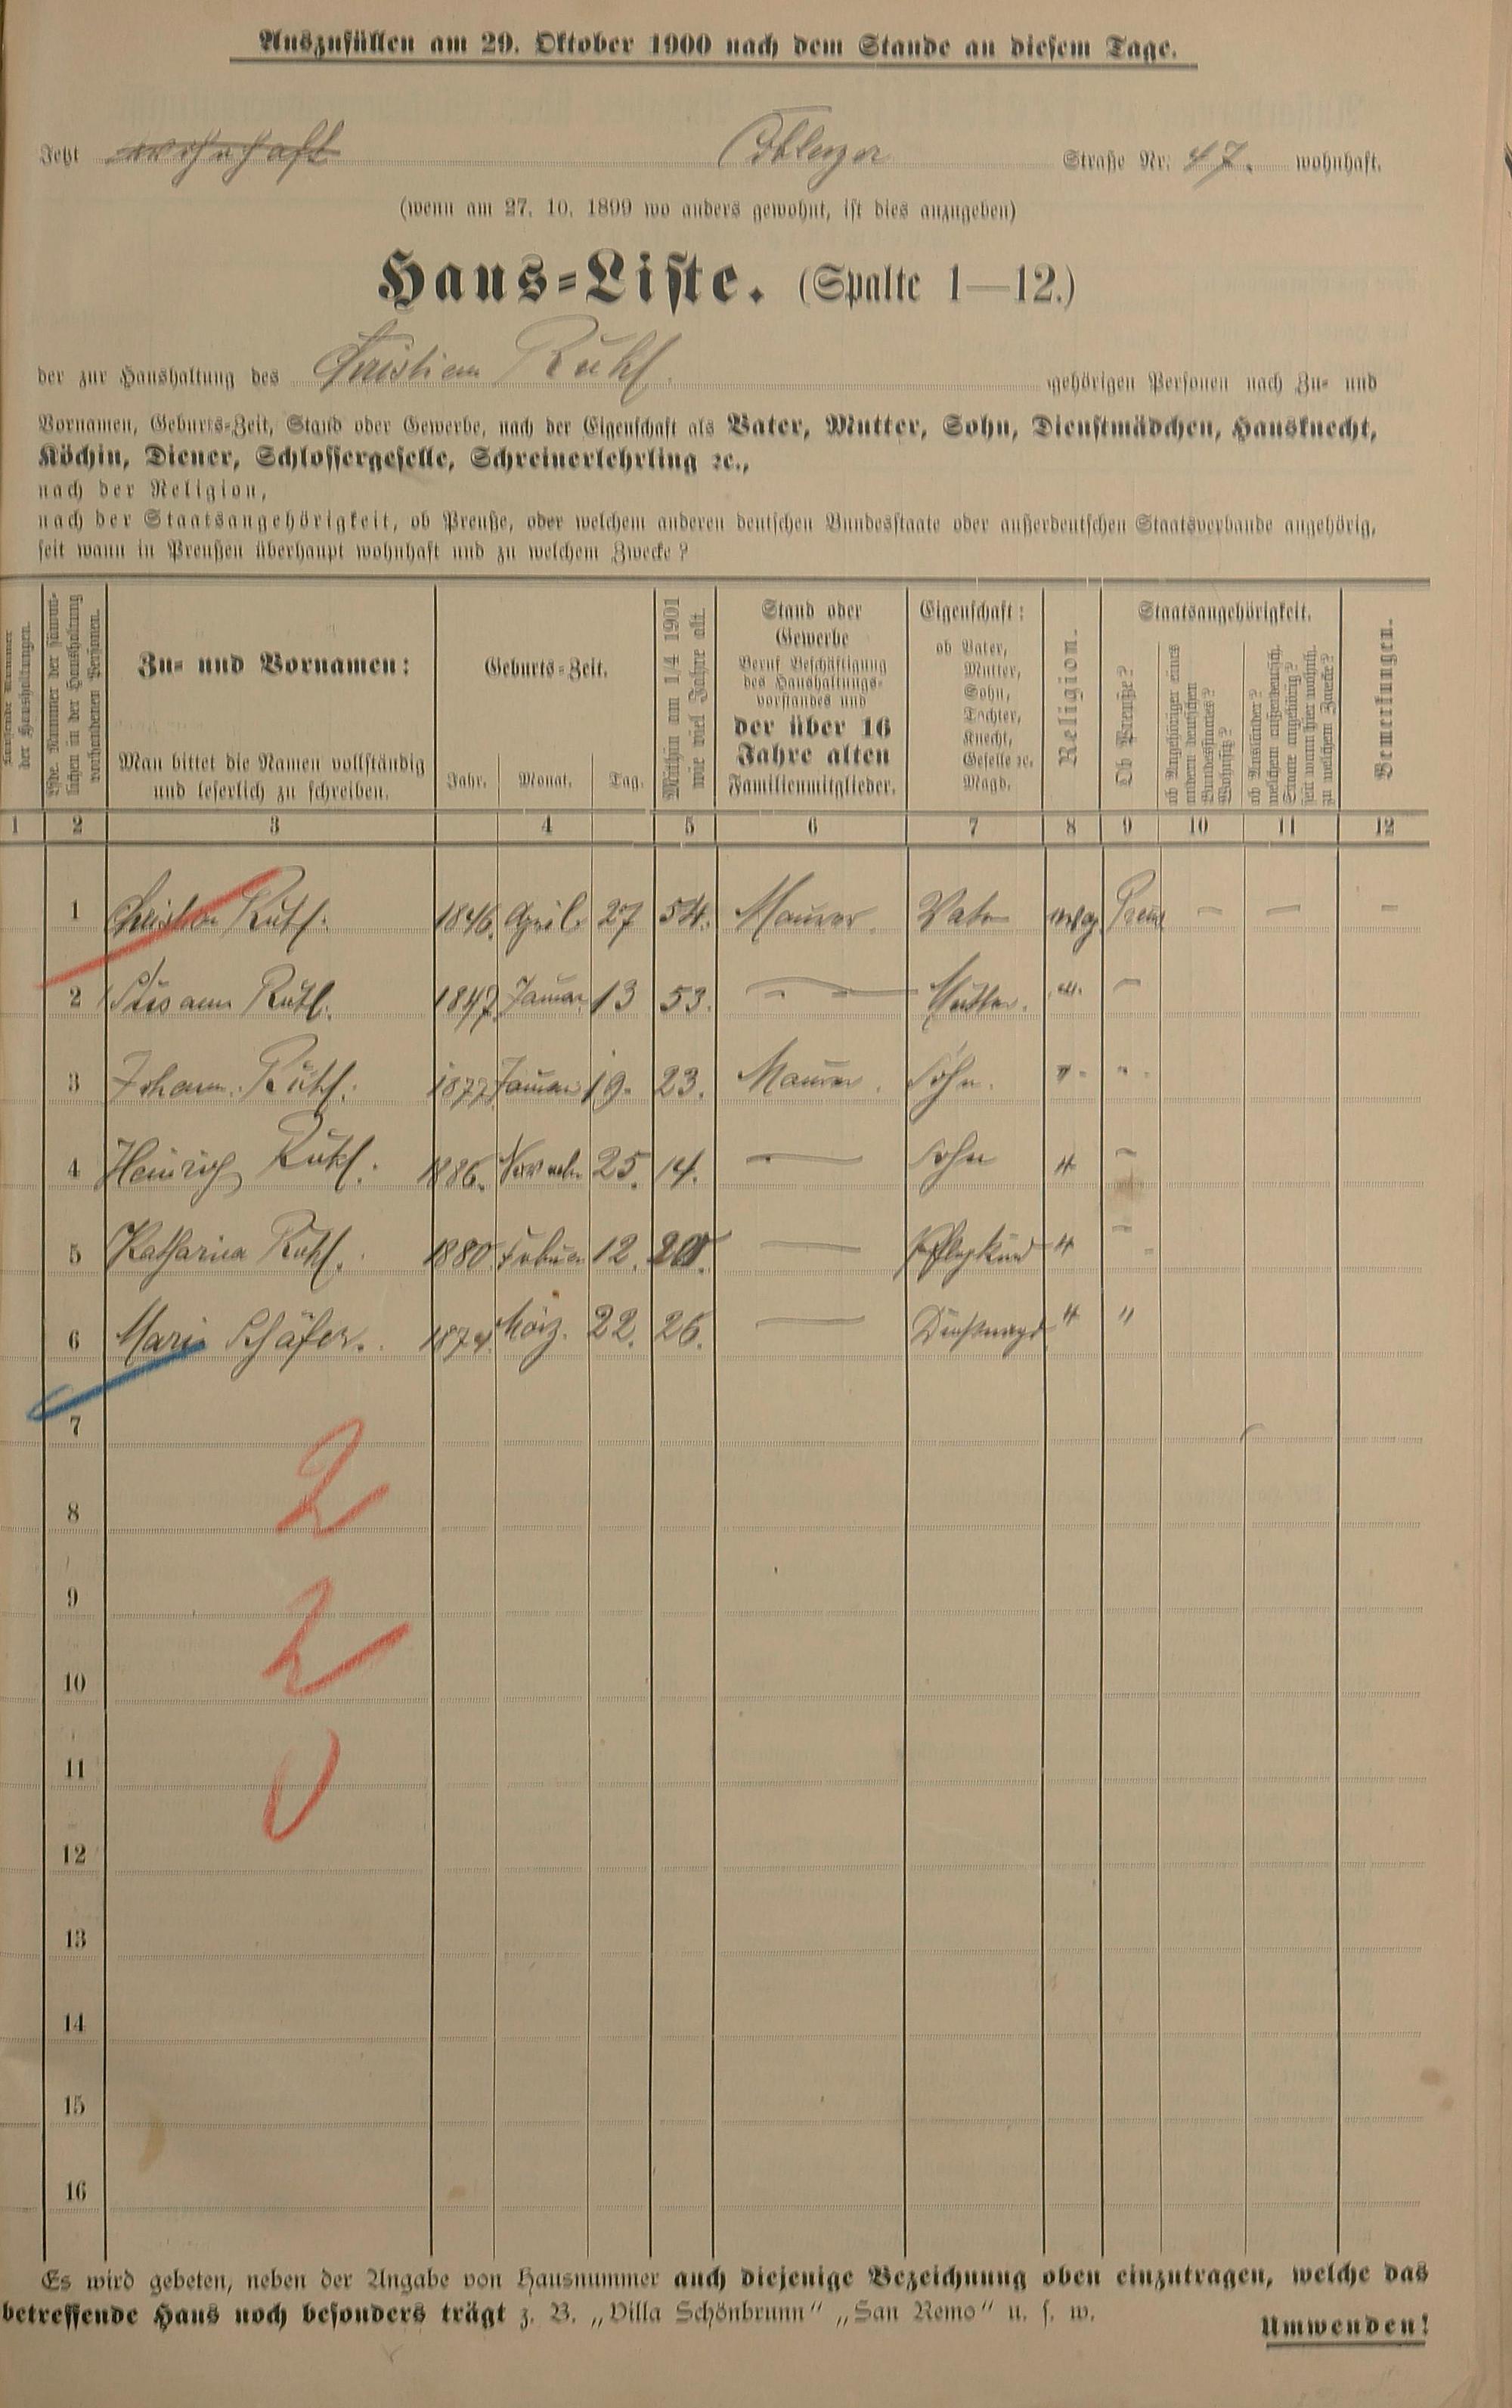 Auszufüllen am 29. Oktober 1900 nach dem Stande an diesem Tage.
Jetzt wohnhaft Straße Nr. 47. wohnhaft.
(wenn am 27. 10. 1899 wo anders gewohnt, ist dies anzugeben)
Haus-Liste. (Spalte 1—12.)
der zur Haushaltung des Christian Rühl. gehörigen Personen nach Zu- und
Vornamen, Geburts-Zeit, Stand oder Gewerbe, nach der Eigenschaft als Vater, Mutter, Sohn, Dienstmädchen, Hausknecht,
Köchin, Diener, Schlossergeselle, Schreinerlehrling ꝛc.,
nach der Religion,
nach der Staatsangehörigkeit, ob Preuße, oder welchem anderen deutschen Bundesstaate oder außerdeutschen Staatsverbande angehörig,
seit wann in Preußen überhaupt wohnhaft und zu welchem Zwecke?
Laufende Nummer
der Haushaltungen.
Lfde. Nummer der sämmt-
lichen in der Haushaltung
vorhandenen Personen.
Zu- und Vornamen:
Man bittet die Namen vollständig
und leserlich zu schreiben.
Geburts-Zeit.
Jahr. Monat. Tag.
Mithin am 1/4 1901
wie viel Jahre alt.
Stand oder
Gewerbe
Beruf Beschäftigung
des Haushaltungs-
vorstandes und
der über 16
Jahre alten
Familienmitglieder.
Eigenschaft:
ob Vater,
Mutter,
Sohn,
Tochter,
Knecht,
Geselle ꝛc.
Magd.
Religion.
Staatsangehörigkeit.
Ob Preuße?
ob Angehöriger eines
andern deutschen
Bundesstaates?
Wohnsitz?
ob Ausländer?
welchem außerdeutsch.
Staate angehörig?
seit wann hier wohnh.
zu welchem Zwecke?
Bemerkungen.
1 2 3 4 5 6 7 8 9 10 11 12
1 Christian Rühl. 1846. April 27 54. Maurer. Vater evg. Preuß — — —
2 Susann Rühl. 1847 Januar 13 53. — Mutter. " —
3 Johann. Rühl. 1877 Januar 19. 23. Maurer. Sohn. " "
4 Heinrich Rühl. 1886. 25. 14. — Sohn " —
5 Katharina Rühl. 1880. Februar 12. 20. — Pflegkind " —
6 Marie Schäfer. 1874. März. 22. 26. — Dienstmagd " "
7
2
8
9
2
10
11
0
12
13
14
15
16
Es wird gebeten, neben der Angabe von Hausnummer auch diejenige Bezeichnung oben einzutragen, welche das
betreffende Haus noch besonders trägt z. B. „Villa Schönbrunn" „San Remo" u. s. w.
Umwenden!